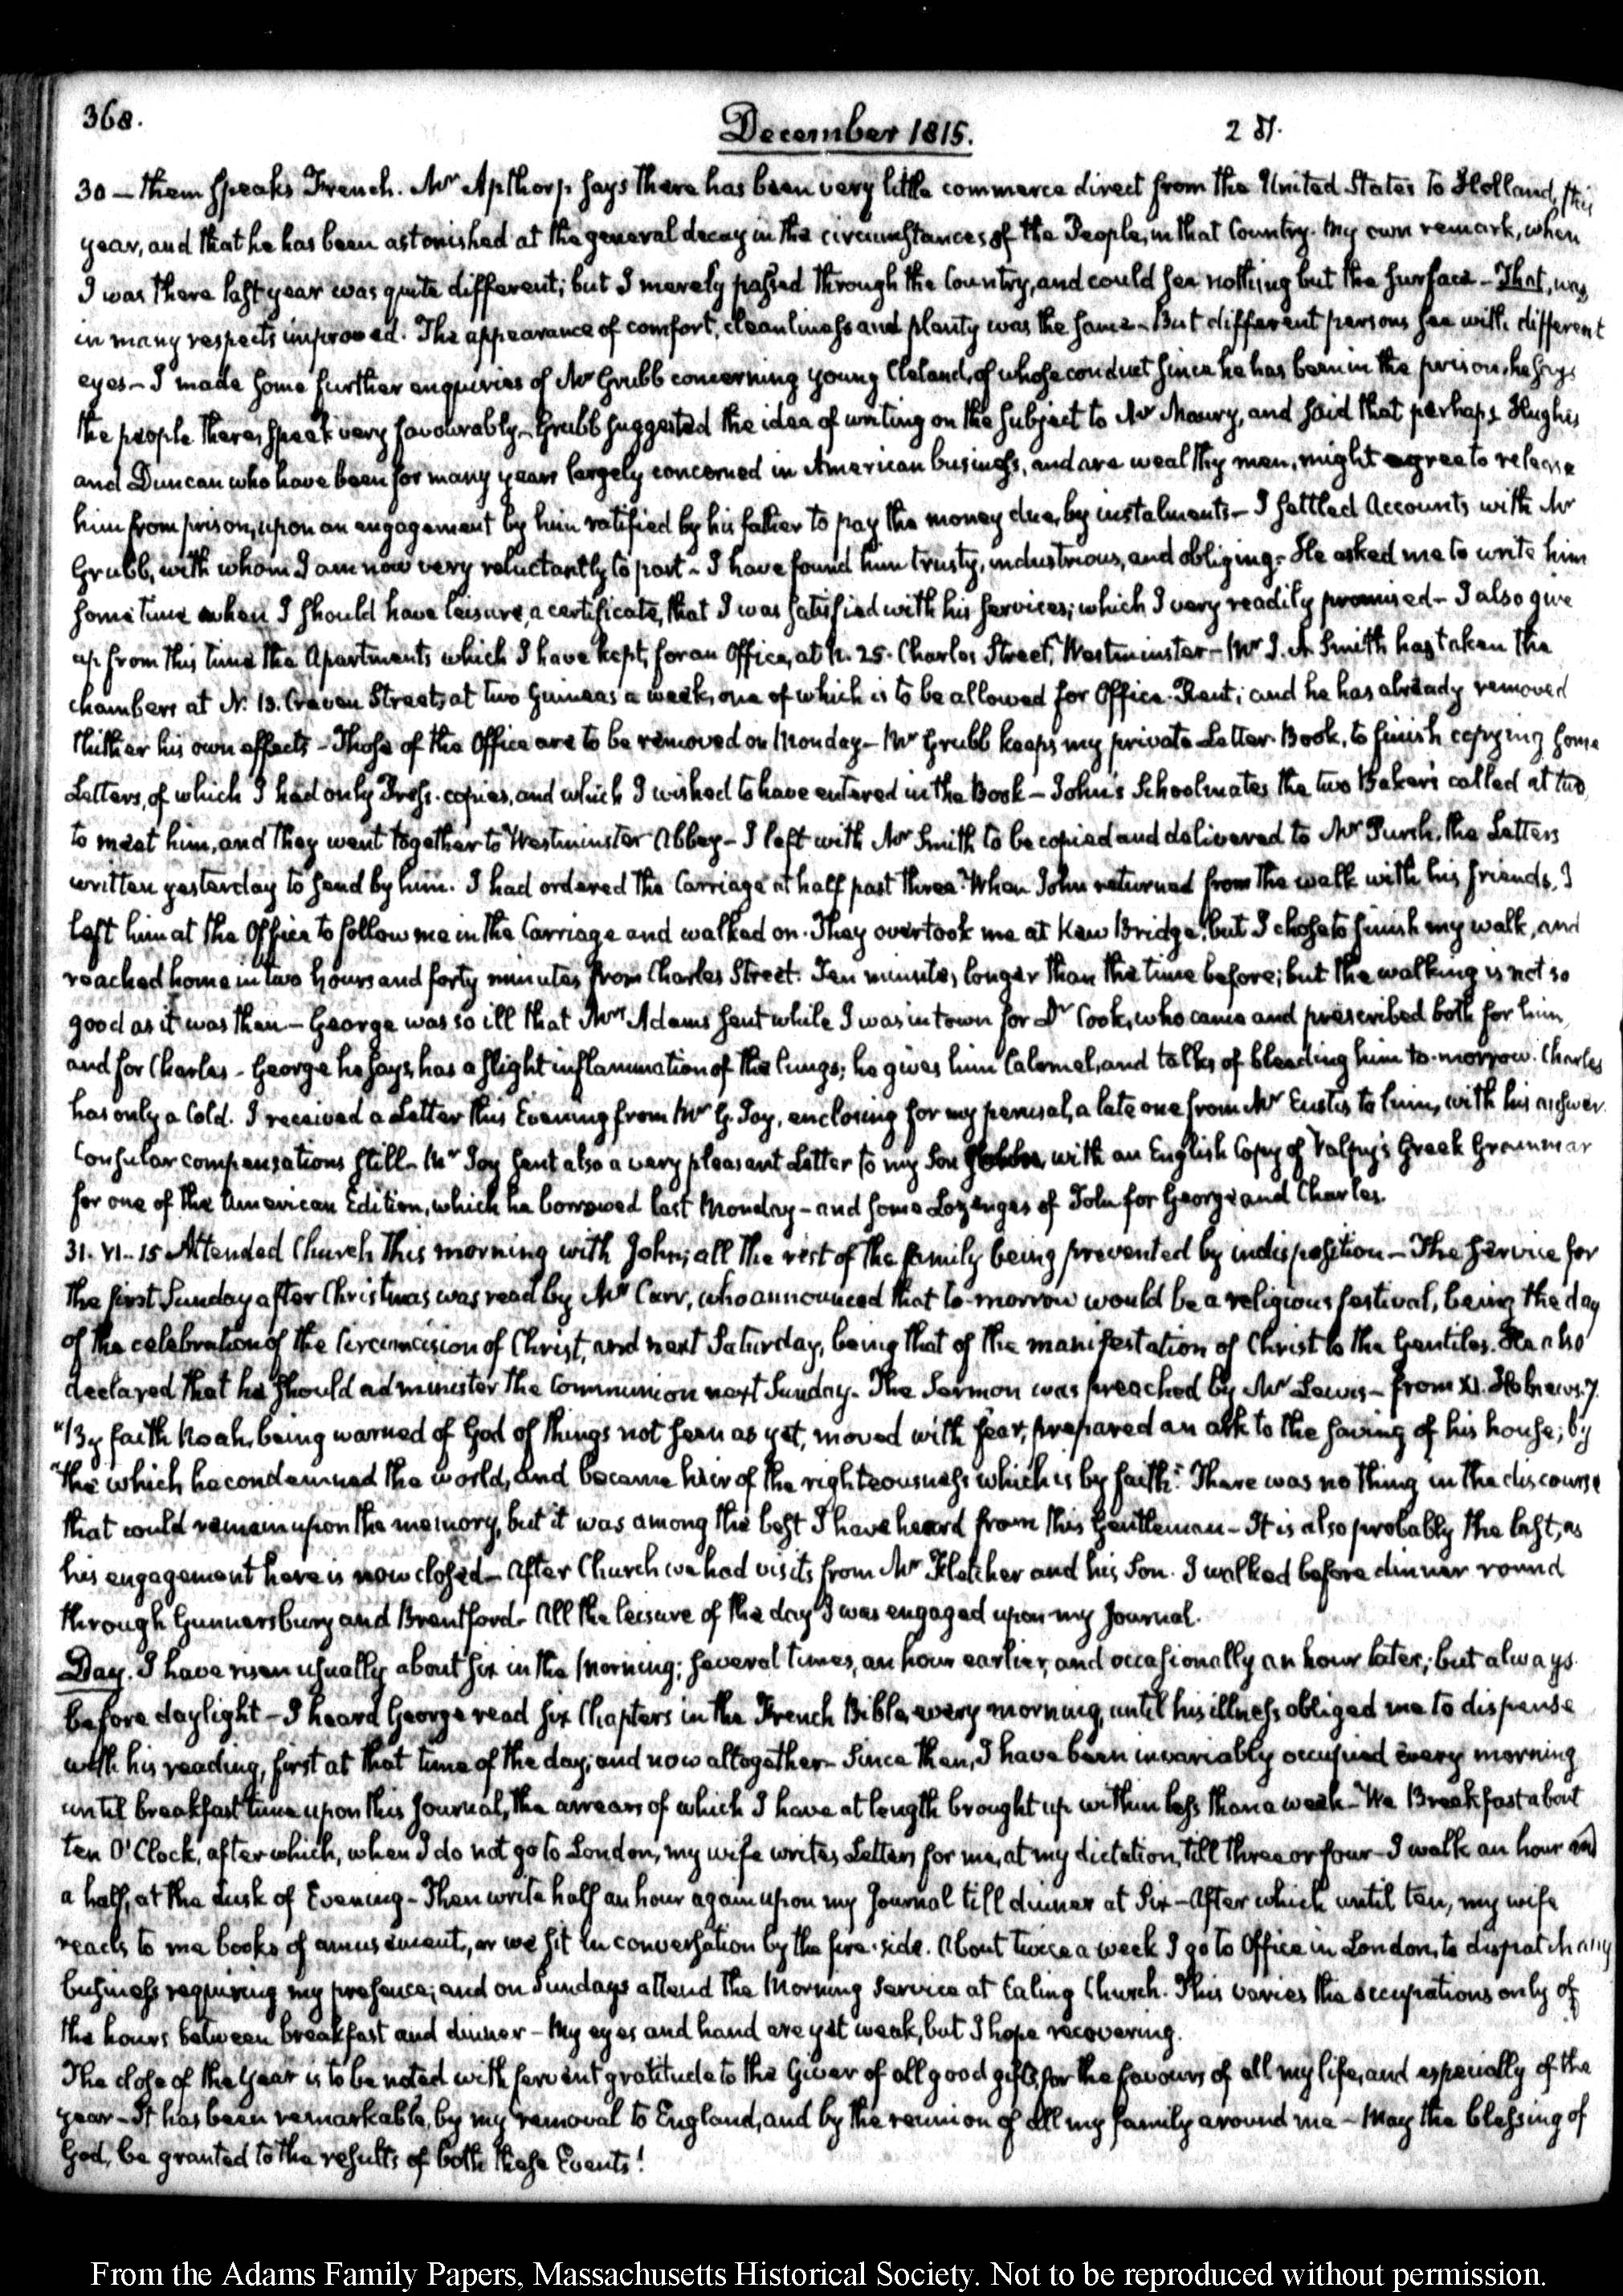 368.
December 1815.
30 — them speaks French. Mr Apthorp says there has been very little commerce direct from the United States to Holland, this
year, and that he has been astonished at the general decay in the circumstances of the People, in that Country. My own remark, when
I was there last year was quite different; but I merely passed through the Country, and could see nothing but the surface — That, was
in many respects improved. The appearance of comfort, cleanliness and plenty was the same — But different persons see with different
eyes — I made some further enquiries of Mr Grubb concerning young Cleland, of whose conduct since he has been in the prison, he says
the people there, speak very favourably — Grubb suggested the idea of writing on the subject to Mr Maury, and said that perhaps Hughes
and Duncan who have been for many years largely concerned in American business, and are wealthy men, might agree to release
him from prison, upon an engagement by him ratified by his father to pay the money due, by instalments — I settled Accounts with Mr
Grubb, with whom I am now very reluctantly to part — I have found him trusty, industrious, and obliging — He asked me to write him
some time when I should have leisure, a certificate, that I was satisfied with his services; which I very readily promised — I also give
up from this time the Apartments which I have kept, for an Office, at N. 25. Charles Street, Westminster — Mr J. A. Smith has taken the
chambers at N. 13. Craven Street, at two Guineas a week, one of which is to be allowed for Office-Rent; and he has already removed
thither his own effects — Those of the Office are to be removed on Monday — Mr Grubb keeps my private Letter-Book, to finish copying some
Letters, of which I had only Press-copies, and which I wished to have entered in the Book — John's Schoolmates the two Bakers called at two,
to meet him, and they went together to Westminster Abbey — I left with Mr Smith to be copied and delivered to Mr Pursh, the Letters
written yesterday to send by him. I had ordered the Carriage at half past three. When John returned from the walk with his friends, I
left him at the Office to follow me in the Carriage and walked on. They overtook me at Kew Bridge, but I chose to finish my walk, and
reached home in two hours and forty minutes from Charles Street. Ten minutes longer than the time before; but the walking is not so
good as it was then — George was so ill that Mrs Adams sent while I was in town for Dr Cook, who came and prescribed both for him,
and for Charles — George he says, has a slight inflammation of the lungs; he gives him Calomel, and talks of bleeding him to-morrow. Charles
has only a Cold. I received a Letter this Evening from Mr G. Joy, enclosing for my perusal, a late one from Mr Eustis to him, with his answer.
Consular compensations still — Mr Joy sent also a very pleasant Letter to my Son with an English Copy of Valpy's Greek Grammar
for one of the American Edition, which he borrowed last Monday — and some Lozenges of Tolu for George and Charles.
31. VI.. 15 Attended Church this morning with John; all the rest of the family being prevented by indisposition — The service for
the first Sunday after Christmas was read by Mr Carr, who announced that to-morrow would be a religious festival, being the day
of the celebration of the Circumcision of Christ, and next Saturday, being that of the manifestation of Christ to the Gentiles. He also
declared that he should administer the Communion next Sunday — The Sermon was preached by Mr Lewis — from XI. Hebrews. 7.
"By faith Noah, being warned of God of things not seen as yet, moved with fear, prepared an ark to the saving of his house; by
"the which he condemned the world, and became heir of the righteousness which is by faith." There was nothing in the discourse
that could remain upon the memory, but it was among the best I have heard from this Gentleman — It is also probably the last, as
his engagement here is now closed — After Church we had visits from Mr Fletcher and his Son. I walked before dinner round
through Gunnersbury and Brentford — All the leisure of the day I was engaged upon my Journal.
Day. I have risen usually about six in the Morning; several times, an hour earlier, and occasionally an hour later; but always
before daylight — I heard George read six Chapters in the French Bible, every morning, until his illness obliged me to dispense
with his reading, first at that time of the day; and now altogether — Since then, I have been invariably occupied every morning
until breakfast time upon this Journal, the arrears of which I have at length brought up within less than a week — We Breakfast about
ten O'Clock, after which, when I do not go to London, my wife writes Letters for me, at my dictation, till three or four — I walk an hour and
a half, at the dusk of Evening — Then write half an hour again upon my Journal till dinner at Six — After which until ten, my wife
reads to me books of amusement, or we sit in conversation by the fire-side. About twice a week I go to Office in London, to dispatch any
business requiring my presence; and on Sundays attend the Morning service at Ealing Church. This varies the occupations only of
the hours between breakfast and dinner — My eyes and hand are yet weak, but I hope recovering.
The close of the Year is to be noted with fervent gratitude to the Giver of all good gifts, for the favours of all my life, and especially of the
year — It has been remarkable, by my removal to England, and by the reunion of all my family around me — May the blessing of
God, be granted to the results of both these Events!
From the Adams Family Papers, Massachusetts Historical Society. Not to be reproduced without permission.